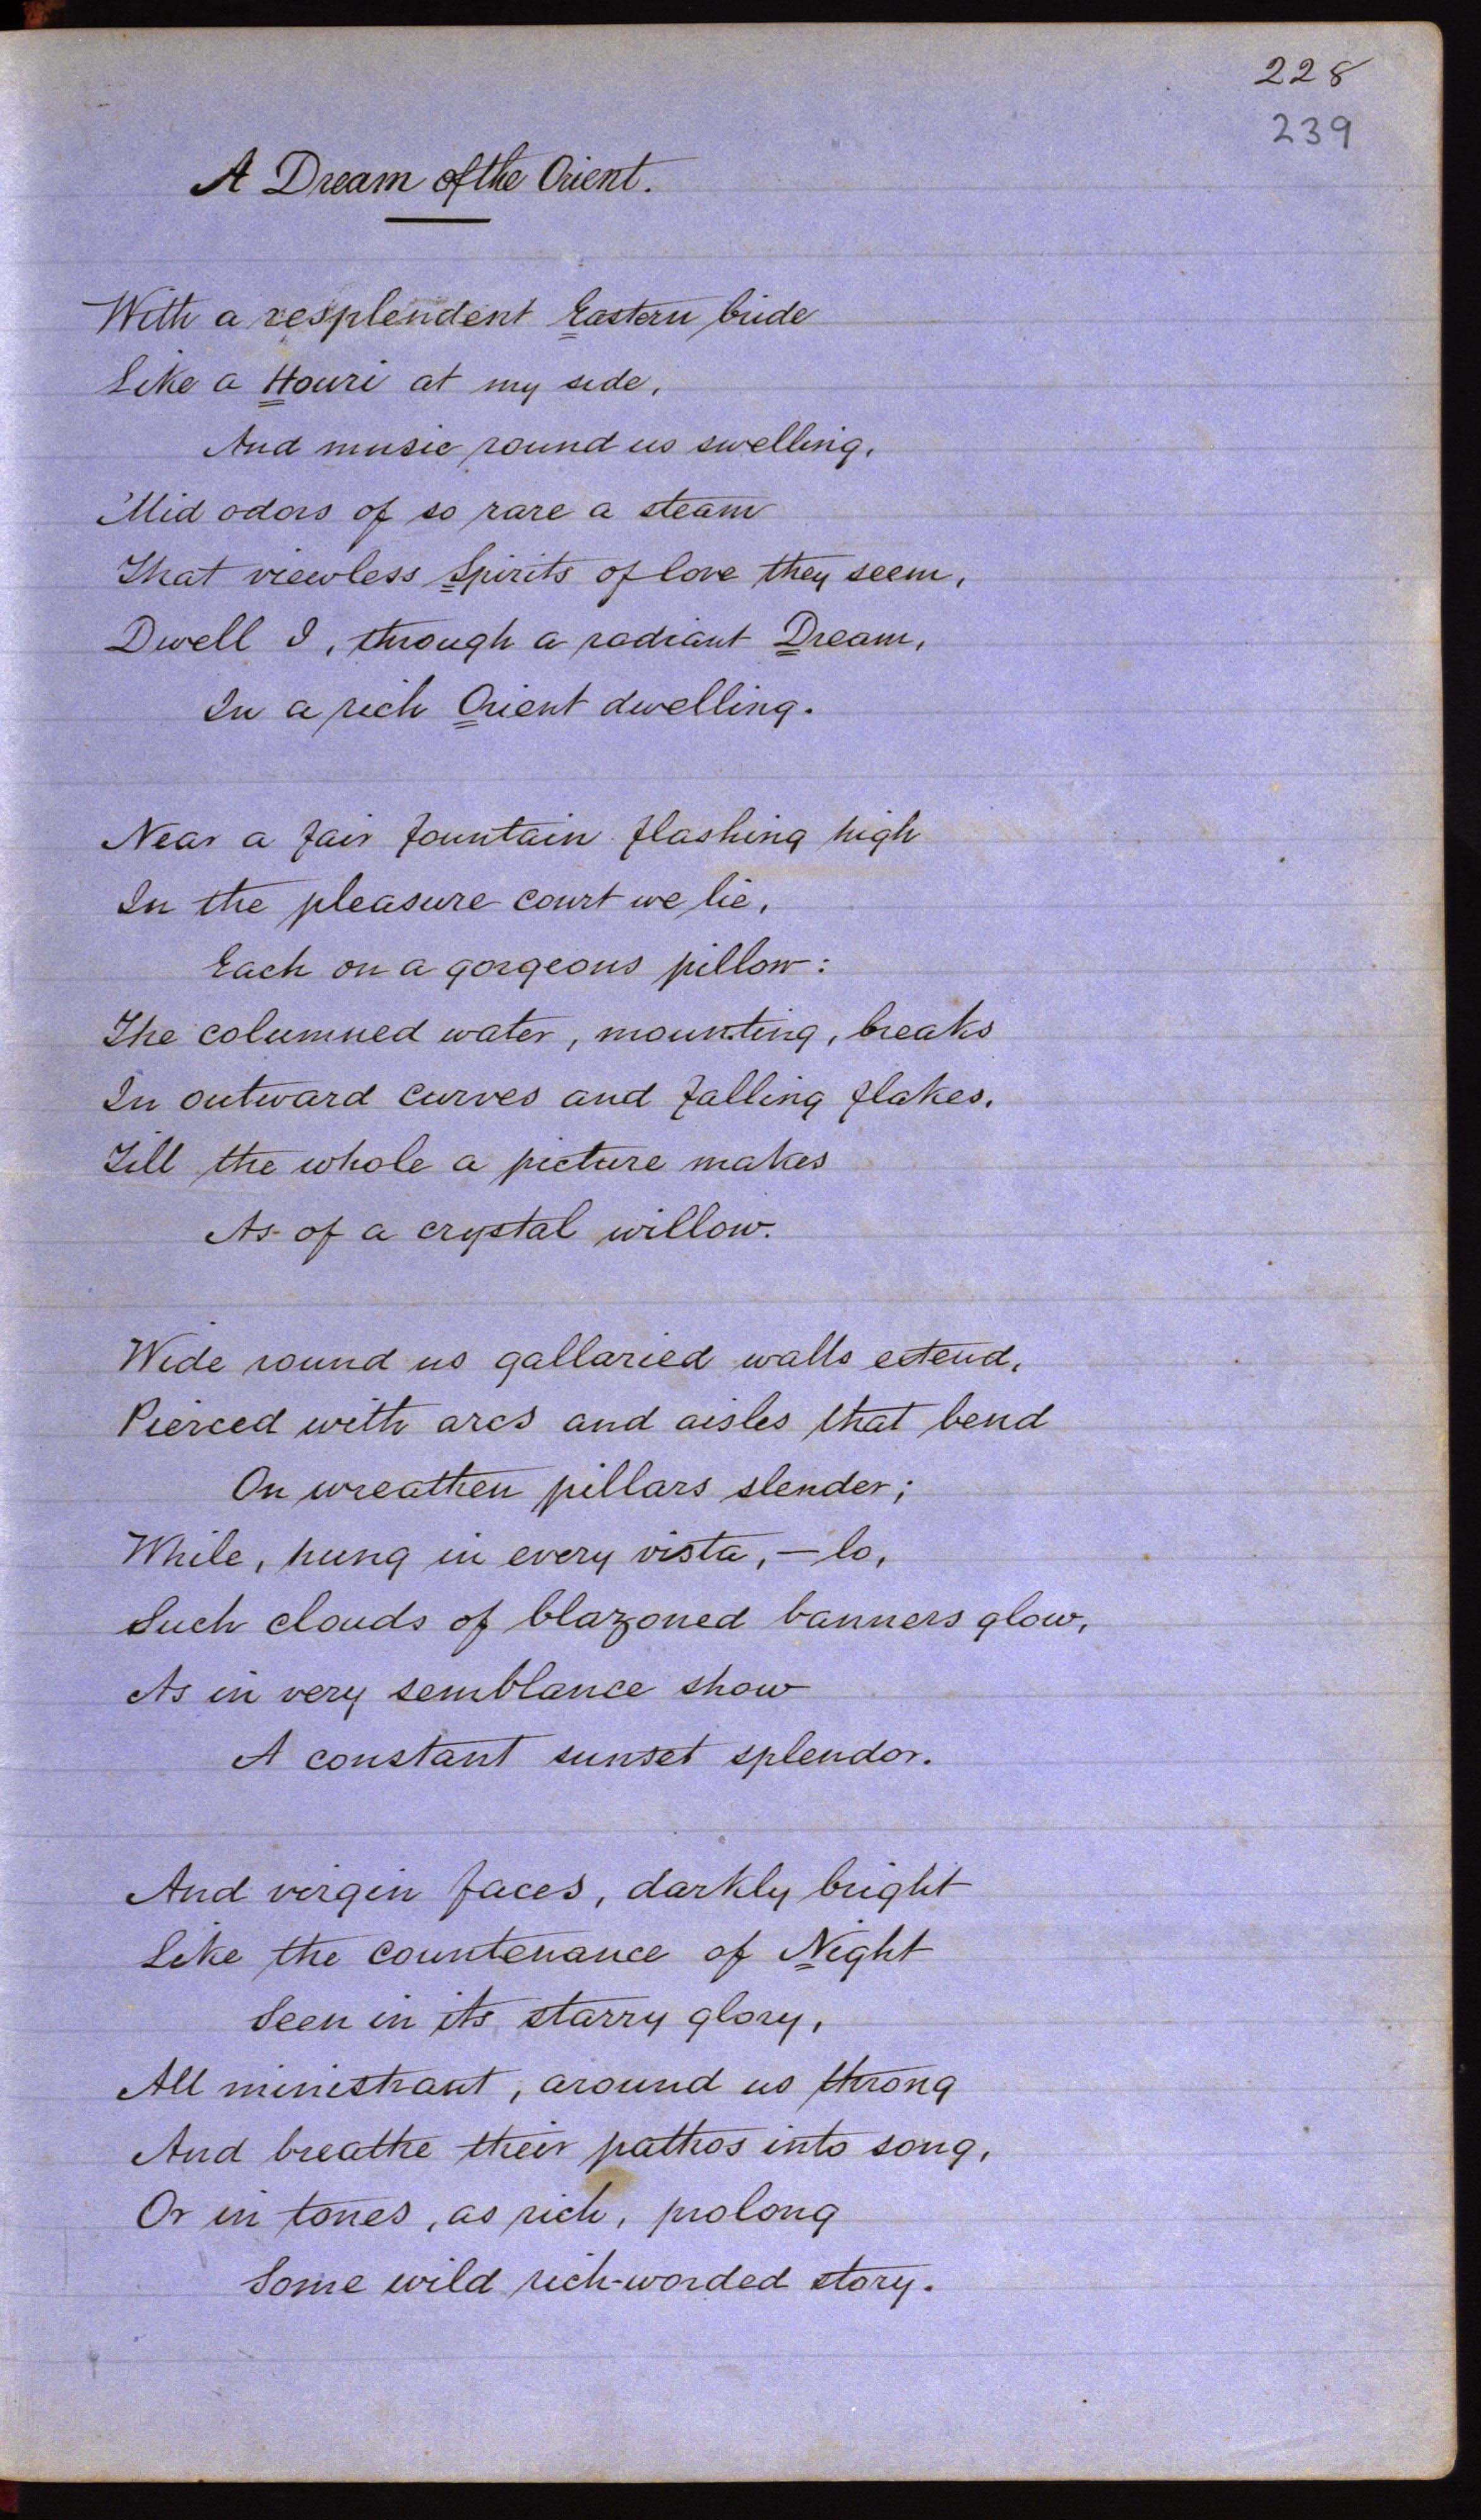 228
239
A Dream of the Orient.
With a resplendent Eastern bride
Like a Houri at my side,
And music round us swelling,
'Mid odors of so rare a steam
That viewless Spirits of love they seem,
Dwell I, through a radiant Dream,
In a rich Orient dwelling.
Near a fair fountain flashing high
In the pleasure court we lie,
Each on a gorgeous pillow:
The columned water, mounting, breaks
In outward curves and falling flakes,
Till the whole a picture makes
As of a crystal willow.
Wide round us gallaried walls extend,
Pierced with arcs and aisles that bend
On wreathen pillars slender;
While, hung in every vista, — lo,
Such clouds of blazoned banners glow,
As in very semblance show
A constant sunset splendor.
And virgin faces, darkly bright
Like the countenance of Night
Seen in its starry glory,
All ministrant, around us throng
And breathe their pathos into song,
Or in tones, as rich, prolong
Some wild rich-worded story.